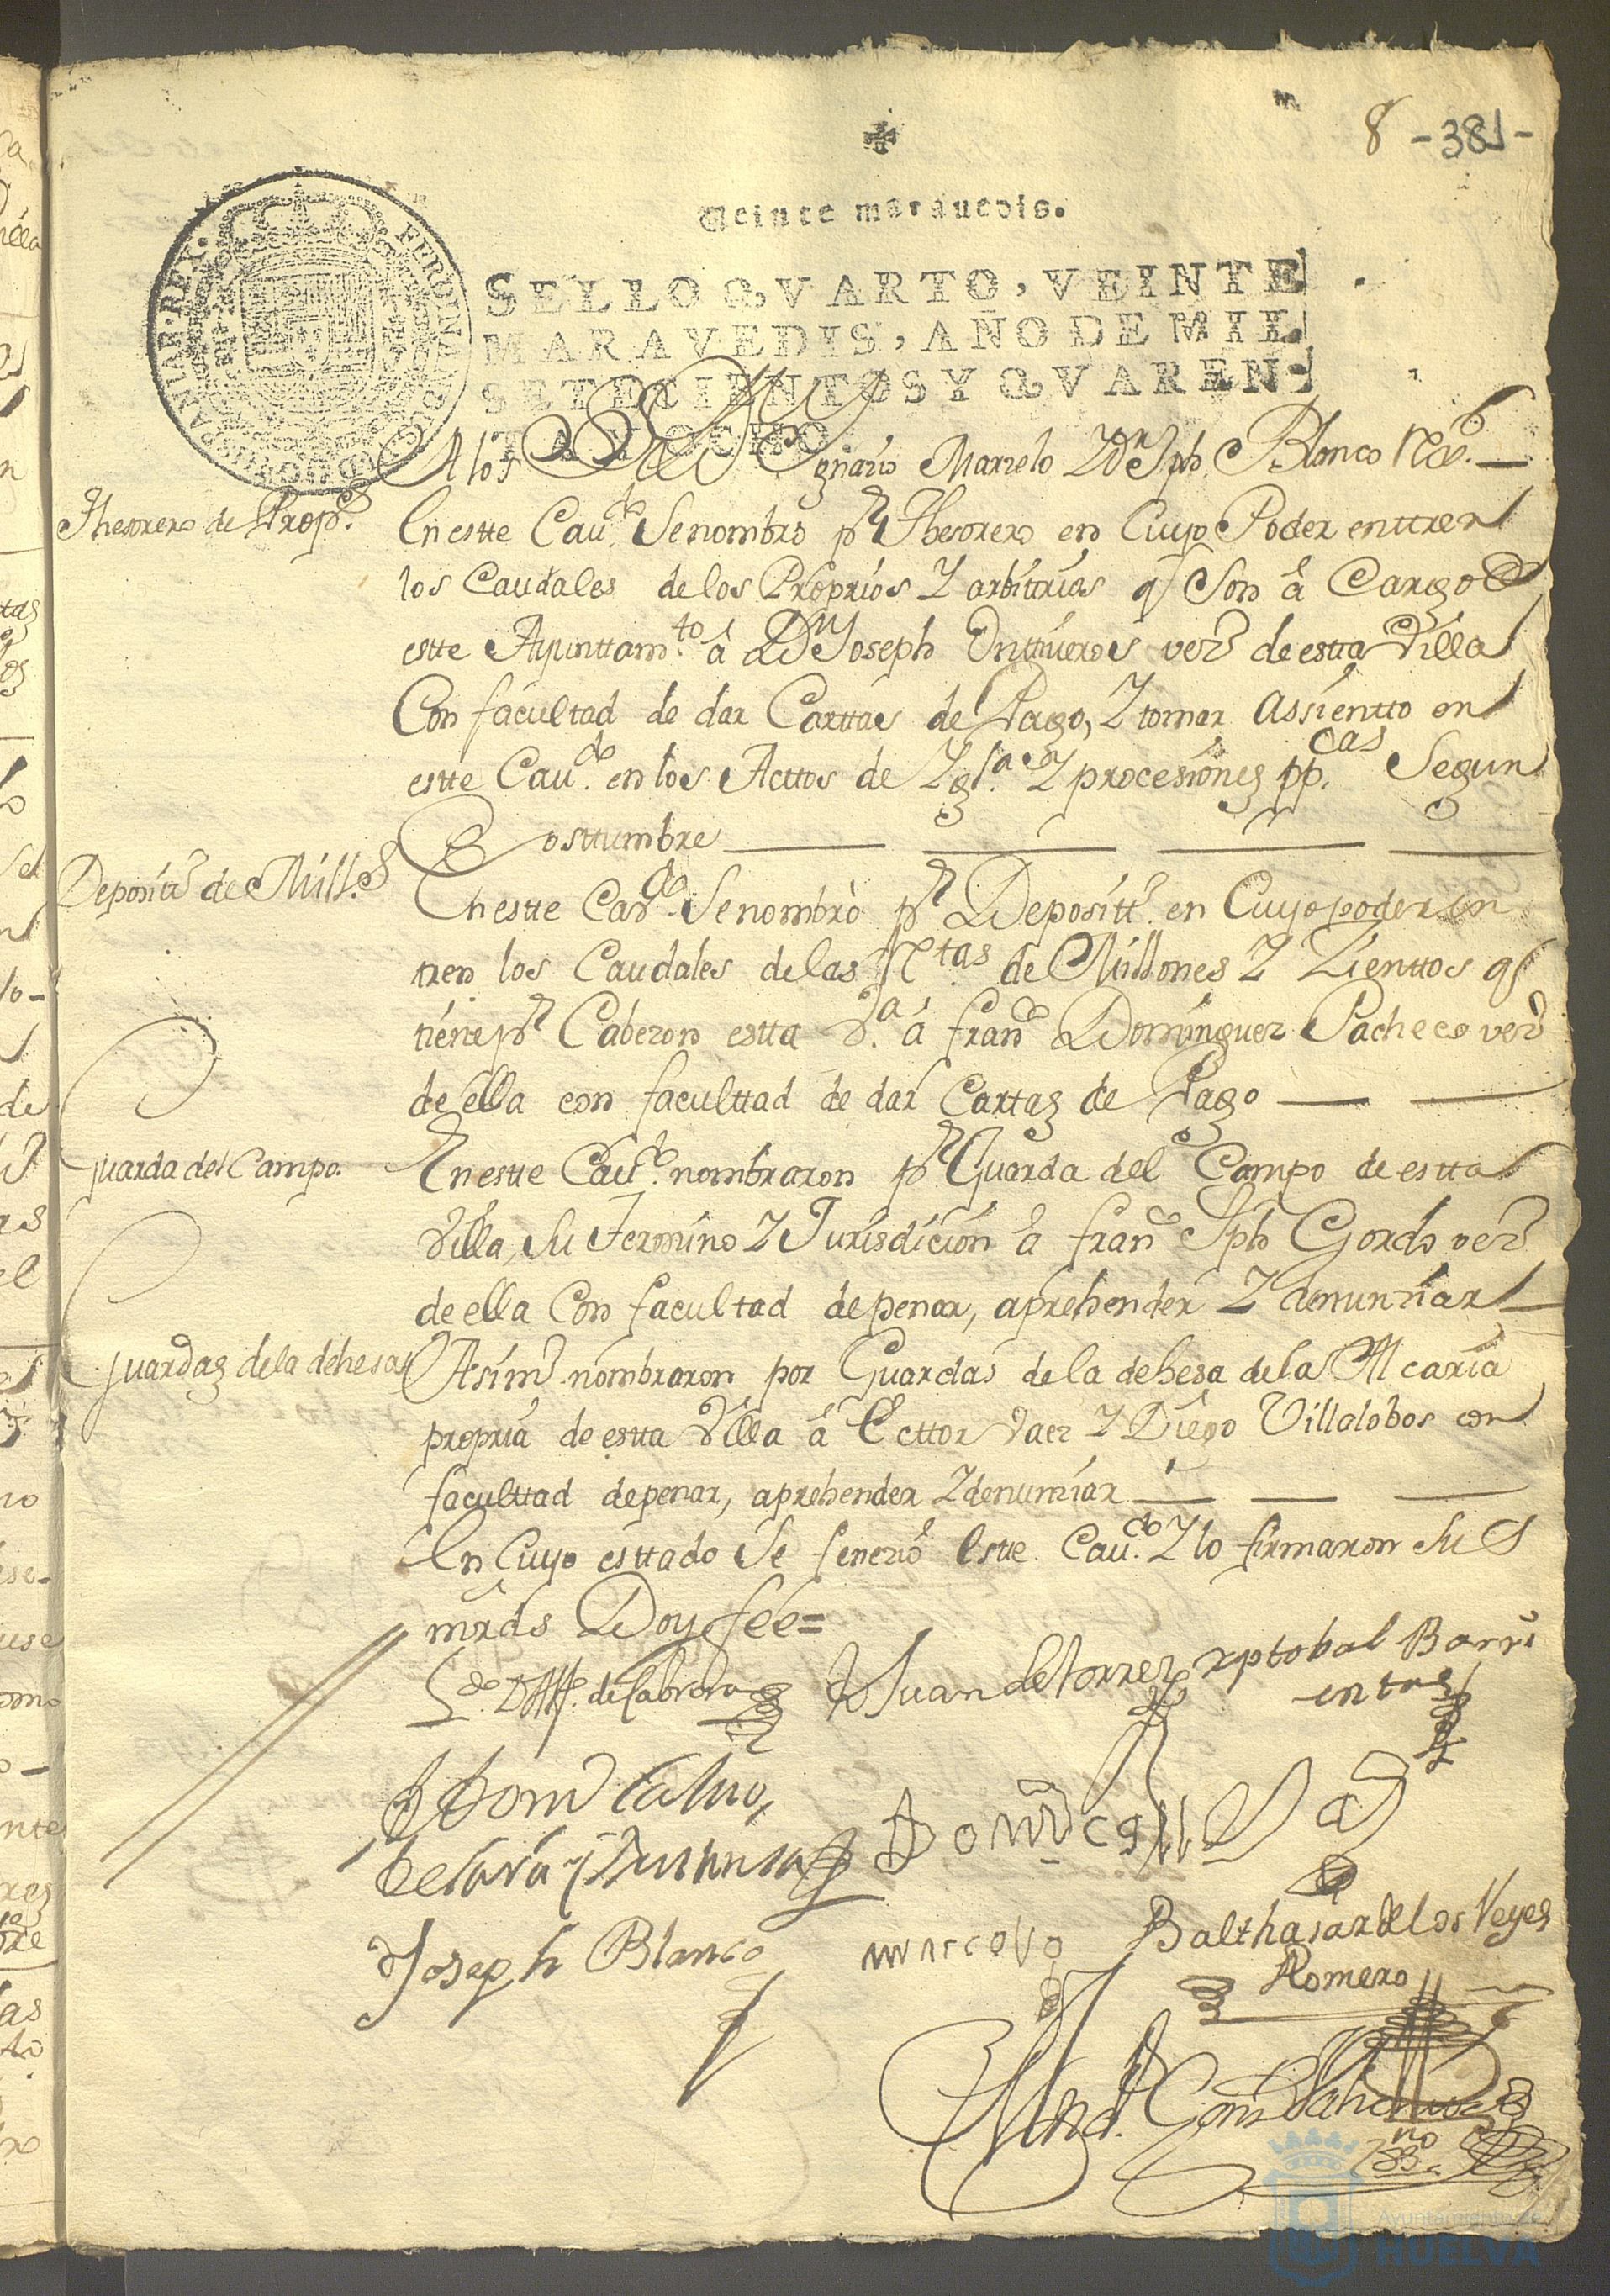 8 -381-
Veinte marauedis.
FERDINANDUS VI D G HISPANIAR REX
SELLO QVARTO, VEINTE
MARAVEDIS, AÑO DE MIL
SETECIENTOS Y QVAREN-
TA Y OCHO.
A los Marzelo Z Dn Jph Blanco
Thesorero de Props.
En estte Cauº. Se nombro pr Thesorero en Cuyo Poder enttren
los Caudales de los Proprios Z arbitrios q Son â Cargo de
estte Ayunttamto. â Dn Joseph Onttiueros vezº de estta Villa
Con facultad de dar Carttas de Pago, Z tomar assientto en
estte Caudo. en los Acttos de Yglª. Z procesiones ppcas. Segun
Costtumbre
Depositº de Mills.
En estte Cauº. Se nombrò pr Depositº. en Cuyo poder en
tren los Caudales de las Rtas. de Millones Z Zienttos q
tiene pr Cabezon estta Vª. â franco Dominguez Pacheco vezº
de ella con facultad de dar Cartas de Pago
Guarda del Campo.
En estte Caudo. nombraron pr Guarda del Campo de estta
Villa, Su Termino Z Jurisdicion â franco Jph Gordo vezº
de ella Con facultad de penar, aprehender Z denunziar
Guardas de la dehesa
Asimº. nombraron por Guardas de la dehesa de la Alcaria
propria de estta Villa â Ecttor Vaez Z Diego Villalobos con
facultad de penar, aprehender Z denunziar
En Cuyo esttado Se fenezio estte Caudo. Z lo firmaron Sus
mrds Doy fee=
Ldo. D de Cabrera
Juan de torres
xptobal Barri
entos
Domº Calvo
de lara y
Domº
Joseph Blanco
marcelo
Balthasar de los Reyes
Romero
Ayuntamiento de
HUELVA